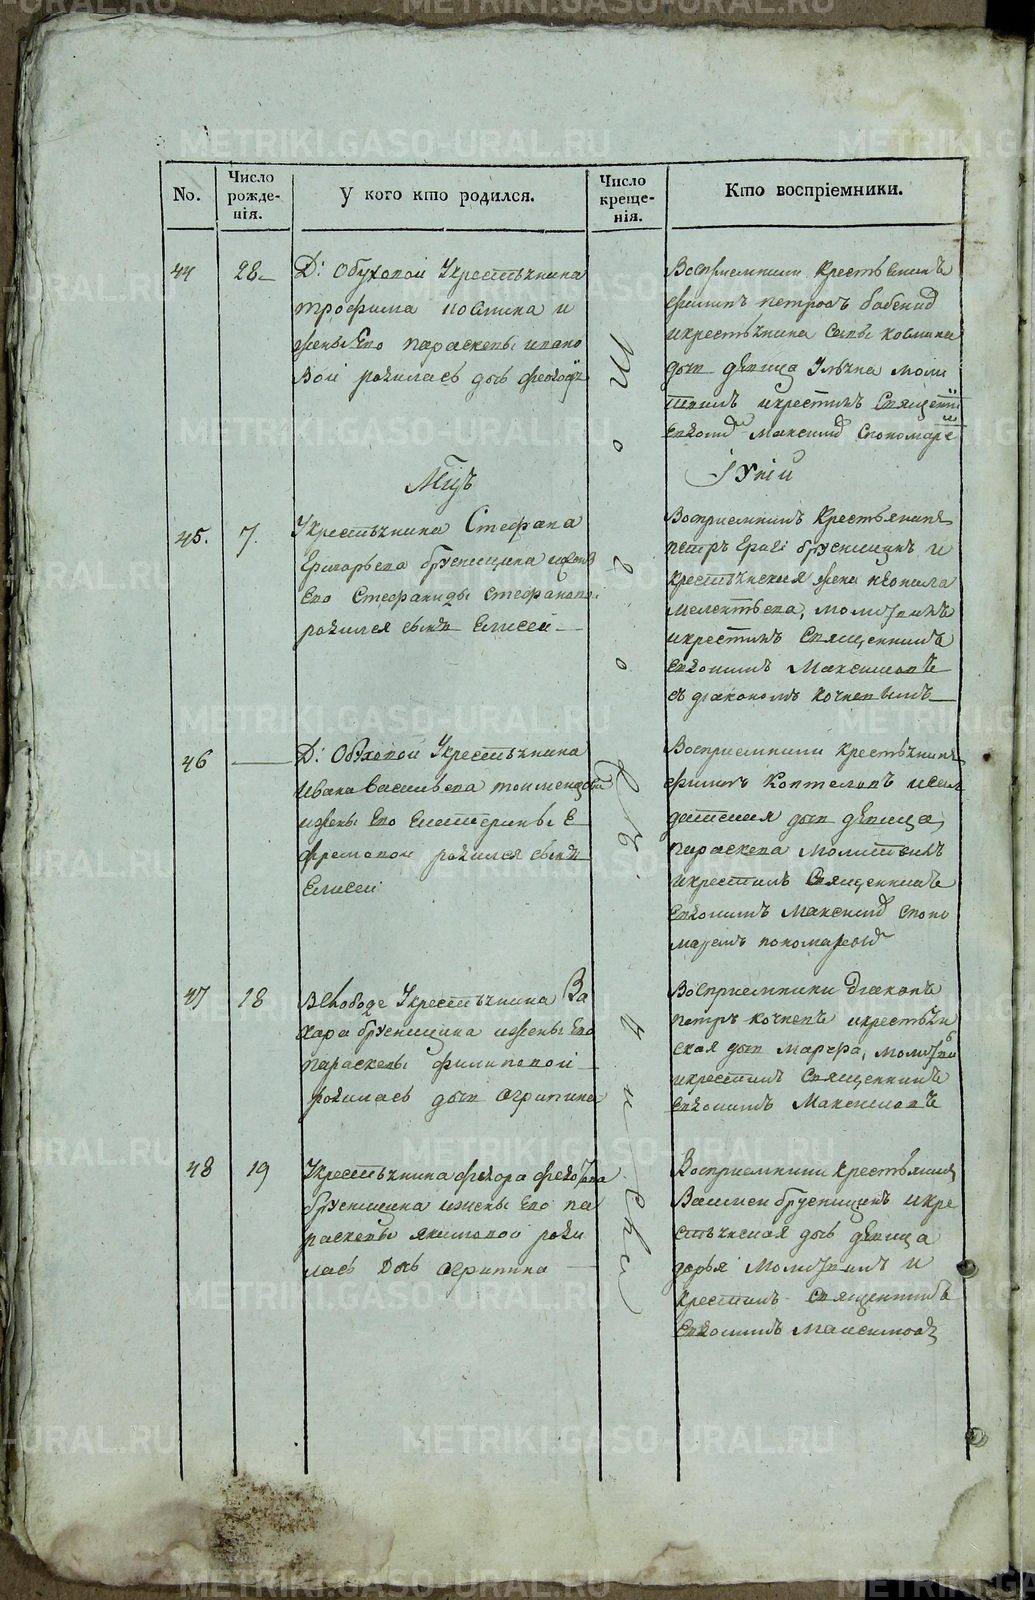 No.
Число рожде-нія.
У кого кто родился.
Число креще-нія.
Кто воспріемники.
44
28
Д: Обуховой Укрестьянина
трофима и
жены Его параскевы ивано
вой родилась дочь
Восприемники крестьянинъ
филипъ петровъ
икрестьянина
дочь девица Ульяна моли
твилъ икрестилъ Священни
Евдоким Максимов Спономаре
того же числа
Мцъ Іуній
45.
7.
Укрестьянина Стефана
Григорьева брусницына ижены
Его Стефаниды Стефановой
родился сынъ Елисей
Восприемникъ Крестьянинъ
петръ брусницынъ и
крестьянская жена неонила
мелентьева, молитвилъ
икрестилъ Священникъ
Евдокимъ Максимовъ
съ диакономъ кочневымъ
46
Д: Обуховой Укрестьянина
Ивана Васильева
ижены Его Екатерины Е
фремовой родился сынъ
Елисей
Восприемники крестьянинъ
филипъ Коптеловъ исол
датская дочь девица
параскева молитвилъ
икрестилъ Священникъ
Евдокимъ Максимов споно
маремъ пономаревым
47
18
ВСлободе Укрестьянина За
хара брусницына ижены Его
параскевы филиповой
родилась дочь Огрипина
Восприемники диаконъ
петръ кочневъ икрестьян
ская дочь марфа, молитви
икрестилъ Священникъ
Евдокимъ Максимовъ
48
19
Укрестьянина федора федотова
брусницына ижены Его па
раскевы якимовой роди
лась дочь огрипина
Восприемники крестьянинъ
Василеи брусницынъ икре
стьянская дочь девица
дарья молитвилъ и
крестилъ Священникъ
Евдокимъ Максимовъ
METRIKI.GASO-URAL.RU